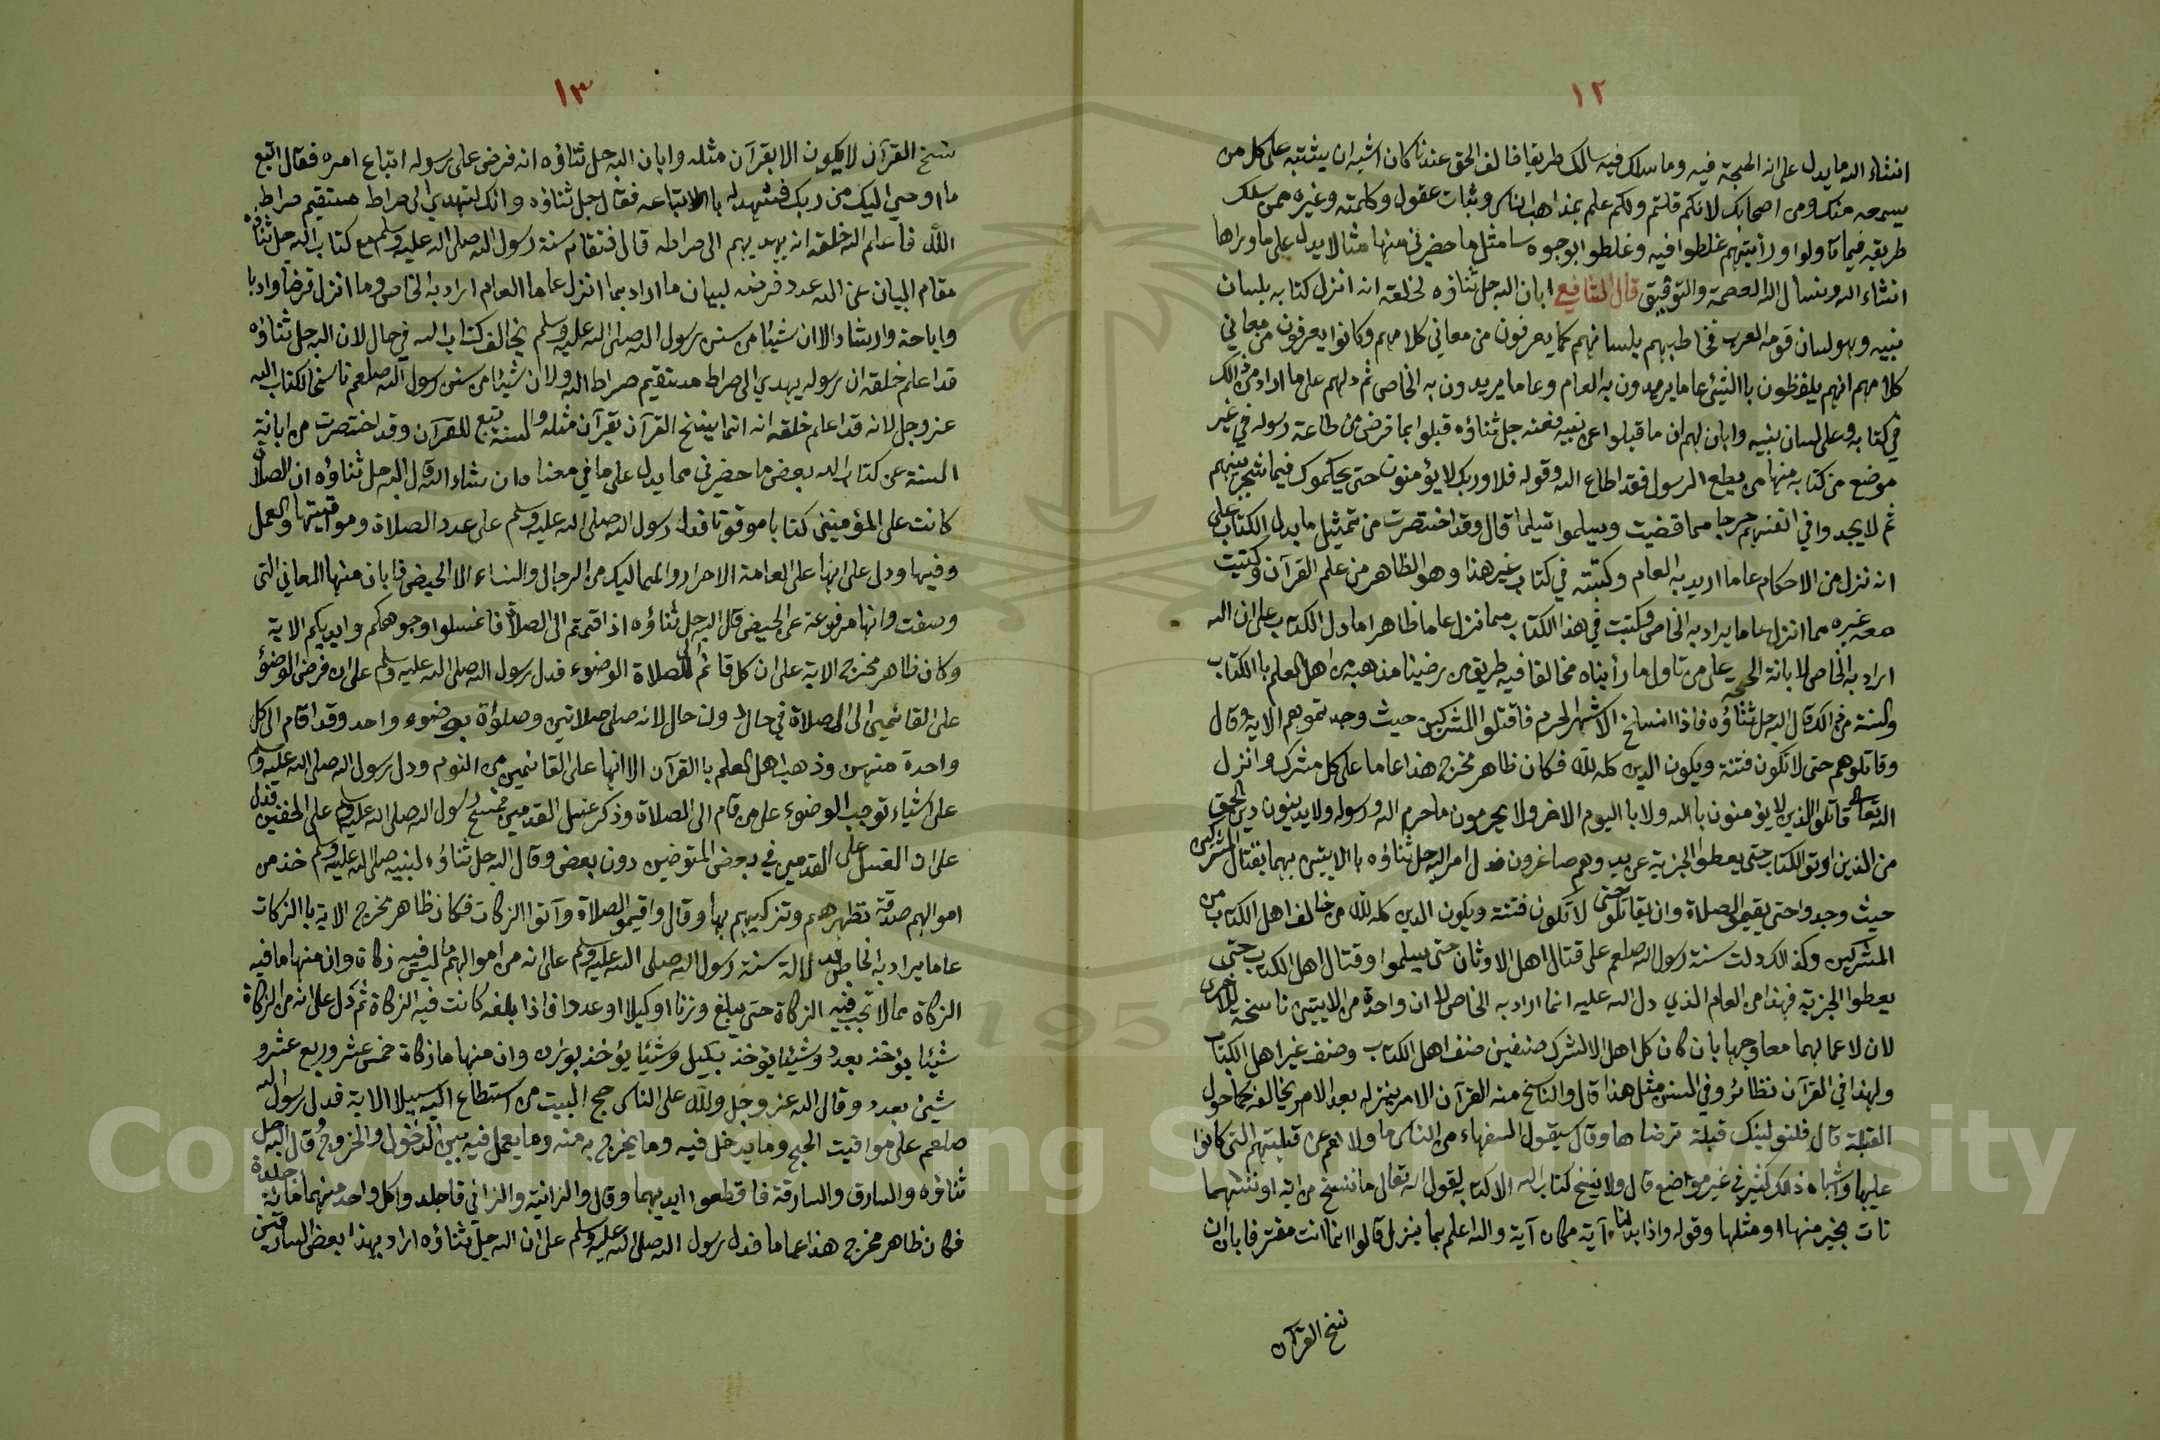 ١٢
انشاء الله ما يدل على انه الحجة فيه وما سلك فيه سالك طريقا خالف الحق عندنا كان اشبه ان يشتبه على كل من
يسمعه منك ومن اصحابك لانكم قلتم ولكم علم بمذاهب الناس وثبات عقول وكلمته وغيره ممن سلك
طريقه فيما تاولوا ورأيتهم غلطوا فيه وغلطوا بوجوه سا مثل ما حضرني منها مثالا يدل على ما وراها
انشاء الله ونسال الله العصمة والتوفيق قال الشافعي ابان الله جل ثناؤه لخلقه انه انزل كتابه بلسان
نبيه وهو لسان قومه العرب فخاطبهم بلسانهم كما يعرفون من معاني كلامهم وكانوا يعرفون من معاني
كلامهم انهم يلفظون باالشئ عاما يريدون به العام وعاما يريدون به الخاص ثم دلهم على ما اراد من ذالك
في كتابه وعلى لسان نبيه وابان لهم ان ما قبلوا عن نبيه فعنه جل ثناؤه قبلوا بما فرض من طاعة رسوله في غير
موضع من كتابه منها من يطع الرسول فقد اطاع الله وقوله فلا وربك لا يؤمنون حتى يحكموك فيما شجر بينهم
ثم لا يجدوا في انفسهم حرجا مما قضيت ويسلموا تسليما قال وقد اختصرت من تمثيل ما يدل الكتاب على
انه نزل من الاحكام عاما اريد به العام وكتبته في كتاب غير هذا وهو الظاهر من علم القرآن وكتبت
معه غيره مما انزل عاما يراد به الخاص وكتبت في هذا الكتاب مما نزل عاما ظاهرا ما دل الكتاب على ان الله
اراد به الخاص لابانة الحجة على من تاول ما رأيناه مخالفا فيه طريق من رضينا مذهبه من اهل العلم باالكتاب
والسنة من ذالك قال الله جل ثناؤه فاذا انسلخ الاشهر الحرم فاقتلوا المشركين حيث وجدتموهم الاية وقال
وقاتلوهم حتى لا تكون فتنة ويكون الدين كله لله فكان ظاهر مخرج هذا عاما على كل مشرك وانزل
الله تعالى قاتلوا الذين لا يؤمنون باالله ولا باليوم الاخر ولا يحرمون ما حرم الله ورسوله ولا يدينون دين الحق
من الذين اوتو الكتاب حتى يعطوا الجزية عن يد وهم صاغرون فدل امر الله جل ثناؤه باالايتين بهما بقتال المشركين
حيث وجدوا حتى يقيموا الصلاة وان يقاتلو حتى لا تكون فتنة ويكون الدين كله لله من خالف اهل الكتاب من
المشركين وكذالك دلت سنة رسول الله صلعم على قتال اهل الاوثان حتى يسلموا وقتال اهل الكتاب حتى
يعطوا الجزية فهذا من العام الذي دل الله عليه انما اراد به الخاص لا ان واحدة من الايتين ناسخة للاخرى
لان لاعمالهما معا وجها بان كان كل اهل الشرك صنفين صنف اهل الكتاب وصنف غير اهل الكتاب
ولهذا في القرآن نظائر وفي السنن مثل هذا قال والناسخ منه القرآن الامر ينزله بعد الامر يخالفه كما حول
القبلة قال فلنولينك قبلة ترضاها وقال سيقول السفهاء من الناس ما ولاهم عن قبلتهم التي كانوا
عليها واشباه ذلك كثير في غير مواضع قال ولا ينسخ كتاب الله الا كتابه لقول الله تعالى ما ننسخ من اية او ننسها
نات بخير منها او مثلها وقوله واذا بدلنا آية مكان آية والله اعلم بما ينزل قالوا انما انت مفتر فابان ان
نسخ القرآن
١٣
نسخ القرآن لا يكون الا بقرآن مثله وابان الله جل ثناؤه انه فرض على رسوله اتباع امره فقال اتبع
ما اوحي اليك من ربك فشهد له باالاتباعه فقال جل ثناؤه وانك لتهدي الى صراط مستقيم صراط
الله فاعلم الله خلقه انه يهديهم الى صراطه قال فتقام سنة رسول الله صلى الله عليه وسلم مع كتاب الله جل ثناؤه
مقام البيان عن الله عدد فرضه لبيان ما اراد بما انزل عاما العام اراد به الخاص وما انزل فرضا وادبا
واباحة وارشادا الا ان شيئا من سنن رسول الله صلى الله عليه وسلم يخالف كتاب الله في حال لان الله جل ثناؤه
قد اعلم خلقه ان رسوله يهدي الى صراط مستقيم صراط الله ولا ان شيئا من سنن رسول الله صلعم ناسخ لكتاب الله
عز وجل لانه قد اعلم خلقه انه انما ينسخ القرآن بقرآن مثله والسنة تبع للقرآن وقد اختصرت من ابانة
السنة عن كتاب الله بعض ما حضرني مما يدل على ما في معناه ان شاء الله قال الله جل ثناؤه ان الصلاة
كانت على المؤمنين كتابا موقوتا فدل رسول الله صلى الله عليه وسلم على عدد الصلاة ومواقيتها والعمل
وفيها ودل على انها على العامة الاحرار والمماليك من الرجال والنساء الا الحيض فابان منها المعاني التي
وصفت وانها مرفوعة عن الحيض قال الله جل ثناؤه اذا قمتم الى الصلاة فاغسلوا وجوهكم وايديكم الاية
وكان ظاهر مخرج الاية على ان كل قائم الى الصلاة الوضوء فدل رسول الله صلى الله عليه وسلم على ان فرض الوضؤ
على القائمين الى الصلاة في حال دون حال لانه صلى صلاتين وصلوة بوضوء واحد وقد اقام الى كل
واحدة منهن وذهب اهل العلم باالقرآن الا انها على القائمين من النوم ودل رسول الله صلى الله عليه وسلم
على اشياء توجب الوضوء على من قام الى الصلاة وذكر غسل القدمين فمسح رسول الله صلى الله عليه وسلم على الخفين فدل
على ان الغسل على القدمين في بعض المتوضين دون بعض وقال الله جل ثناؤه لنبيه صلى الله عليه وسلم خذ من
اموالهم صدقة تطهرهم وتزكيهم بها وقال واقيموا الصلاة وآتوا الزكات فكان ظاهر مخرج الاية باالزكات
عاما يراد به الخاص بدلالة سنة رسول الله صلى الله عليه وسلم على انه من اموالهم ما ليس فيه زكاة وان منها ما فيه
الزكاة مما لا تجب فيه الزكاة حتى يبلغ وزنا او كيلا او عددا فاذا بلغه كانت فيه الزكاة ثم دل على انه من الزكاة
شيئا يؤخذ بعدد وشيئا يؤخذ بكيل وشيئا يؤخذ بوزان وان منها ما زكاة خمس عشر وربع عشر و
شيئ بعدد وقال الله عز وجل ولله على الناس حج البيت من استطاع اليه سبيلا الاية فدل رسول الله
صلعم على مواقيت الحج وما يدخل فيه وما يخرج به منه وما يعمل فيه بين الدخول والخروج وقال الله جل
ثناؤه والسارق والسارقة فاقطعوا ايديهما وقال والزانية والزاني فاجلدوا كل واحد منهما مائة جلدة
فكان ظاهر مخرج هذا عاما فدل رسول الله صلى الله عليه وسلم على ان الله جل ثناؤه اراد بهذا بعض السارقين
Copyright © King Saud University
1957